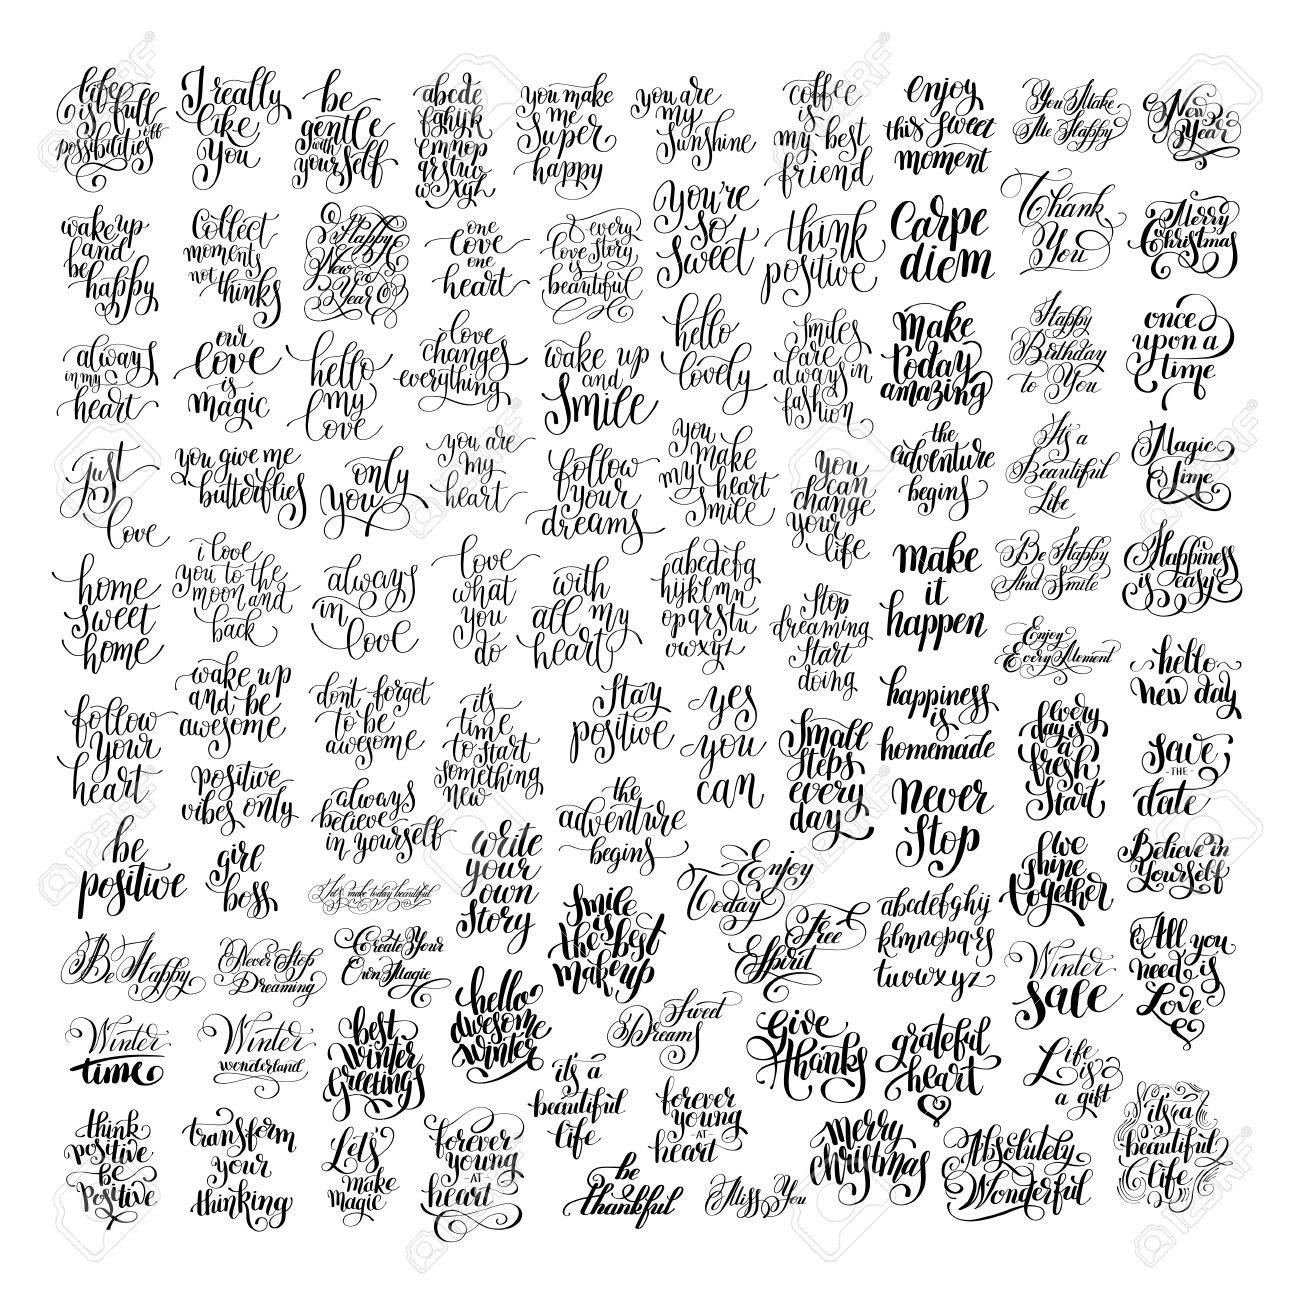 life
is full
off
possibilities
I really
like
you
be
gentle
with
yourself
abcde
fghijk
lmnop
qrstuv
wxyz
you make
me
super
happy
you are
my
sunshine
coffee
is
my best
friend
enjoy
this sweet
moment
You Make
Me Happy
New
Year
wake up
and
be
happy
collect
moments
not
things
Happy
New
Year
one
love
one
heart
every
love story
is
beautiful
you're
so
sweet
think
positive
carpe
diem
Thank
You
Merry
Christmas
always
in my
heart
our
love
is
magic
hello
my
love
love
changes
everything
wake up
and
smile
hello
lovely
smiles
are
always in
fashion
make
today
amazing
Happy
Birthday
to You
once
upon a
time
just
love
you give me
butterflies
only
you
you are
my
heart
follow
your
dreams
you
make
my heart
smile
you
can
change
your
life
the
adventure
begins
It's a
Beautiful
Life
Magic
Time
home
sweet
home
i love
you to the
moon and
back
always
in
love
love
what
you
do
with
all my
heart
abcdefg
hijklmn
opqrstu
vwxyz
stop
dreaming
start
doing
make
it
happen
Be Happy
And Smile
Happiness
is easy
Enjoy
Every Moment
hello
new day
follow
your
heart
wake up
and be
awesome
don't forget
to be
awesome
it's
time
to start
something
new
stay
positive
yes
you
can
small
steps
every
day
happiness
is
homemade
every
day is
a
fresh
start
save
- THE -
date
positive
vibes only
always
believe
in yourself
the
adventure
begins
never
stop
be
positive
girl
boss
Let's make today beautiful
write
your
own
story
smile
is
the best
makeup
Enjoy
Today
Free
Spirit
abcdefghij
klmnopqrs
tuvwxyz
we
shine
together
Believe in
Yourself
Be Happy
Never Stop
Dreaming
Create Your
Own Magic
hello
awesome
winter
Sweet
Dreams
Winter
sale
All you
need is
Love
Winter
time
Winter
wonderland
best
winter
greetings
it's a
beautiful
life
forever
young
- AT -
heart
Give
thanks
grateful
heart
Life
is
a gift
think
positive
be
positive
transform
your
thinking
Let's
make
magic
forever
young
- AT -
heart
be
thankful
Miss You
merry
christmas
Absolutely
Wonderful
it's a
beautiful
life